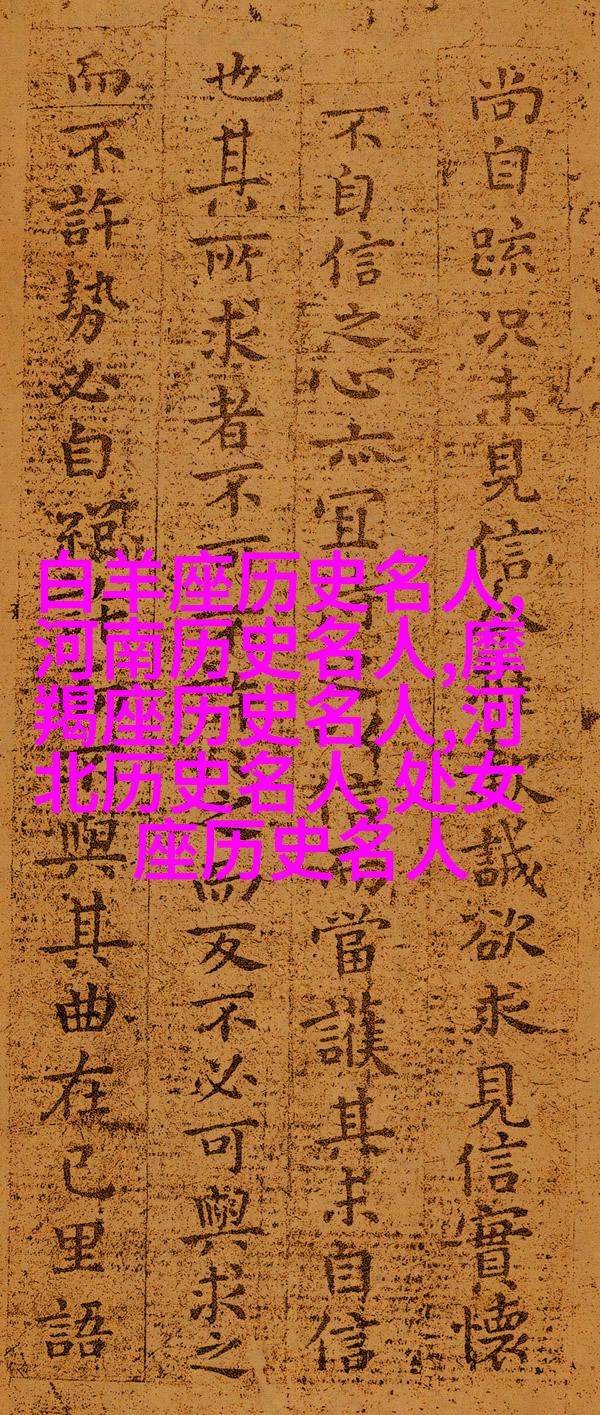 尚自疏况未見信誠欲求見信實懷
不自信之心亦宜信當護其未自信
也其所求者不而反不必可與求之
而不許勢必自與其曲在己里語
白羊座历史名人,
河南历史名人,摩
羯座历史名人,河
北历史名人,处女
座历史名人